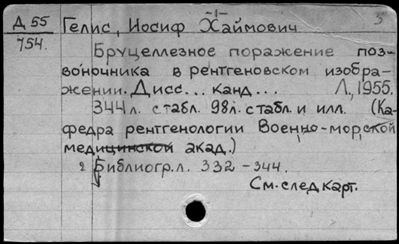 Д 55
754.
-1-
Гелис, Иосиф Хаймович
Бруцеллезное поражение поз-
воночника в рентгеновском изобра-
жении. Дисс... канд... Л., 1955.
344 л. с табл. 98 л. с табл. и илл. (Ка-
федра рентгенологии Военно-морской
медицинской акад.)
Библиогр. л. 332-344.
См. след карт.